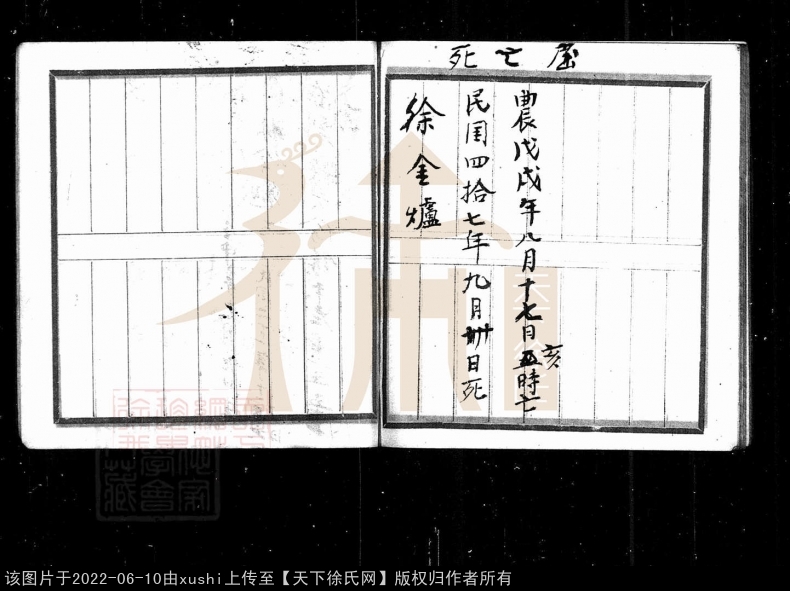 死亡
農戊戌年八月十七日亥時亡
民国四拾七年九月卅日死
徐金爐
该图片于2022-06-10由xushi上传至【天下徐氏网】版权归作者所有